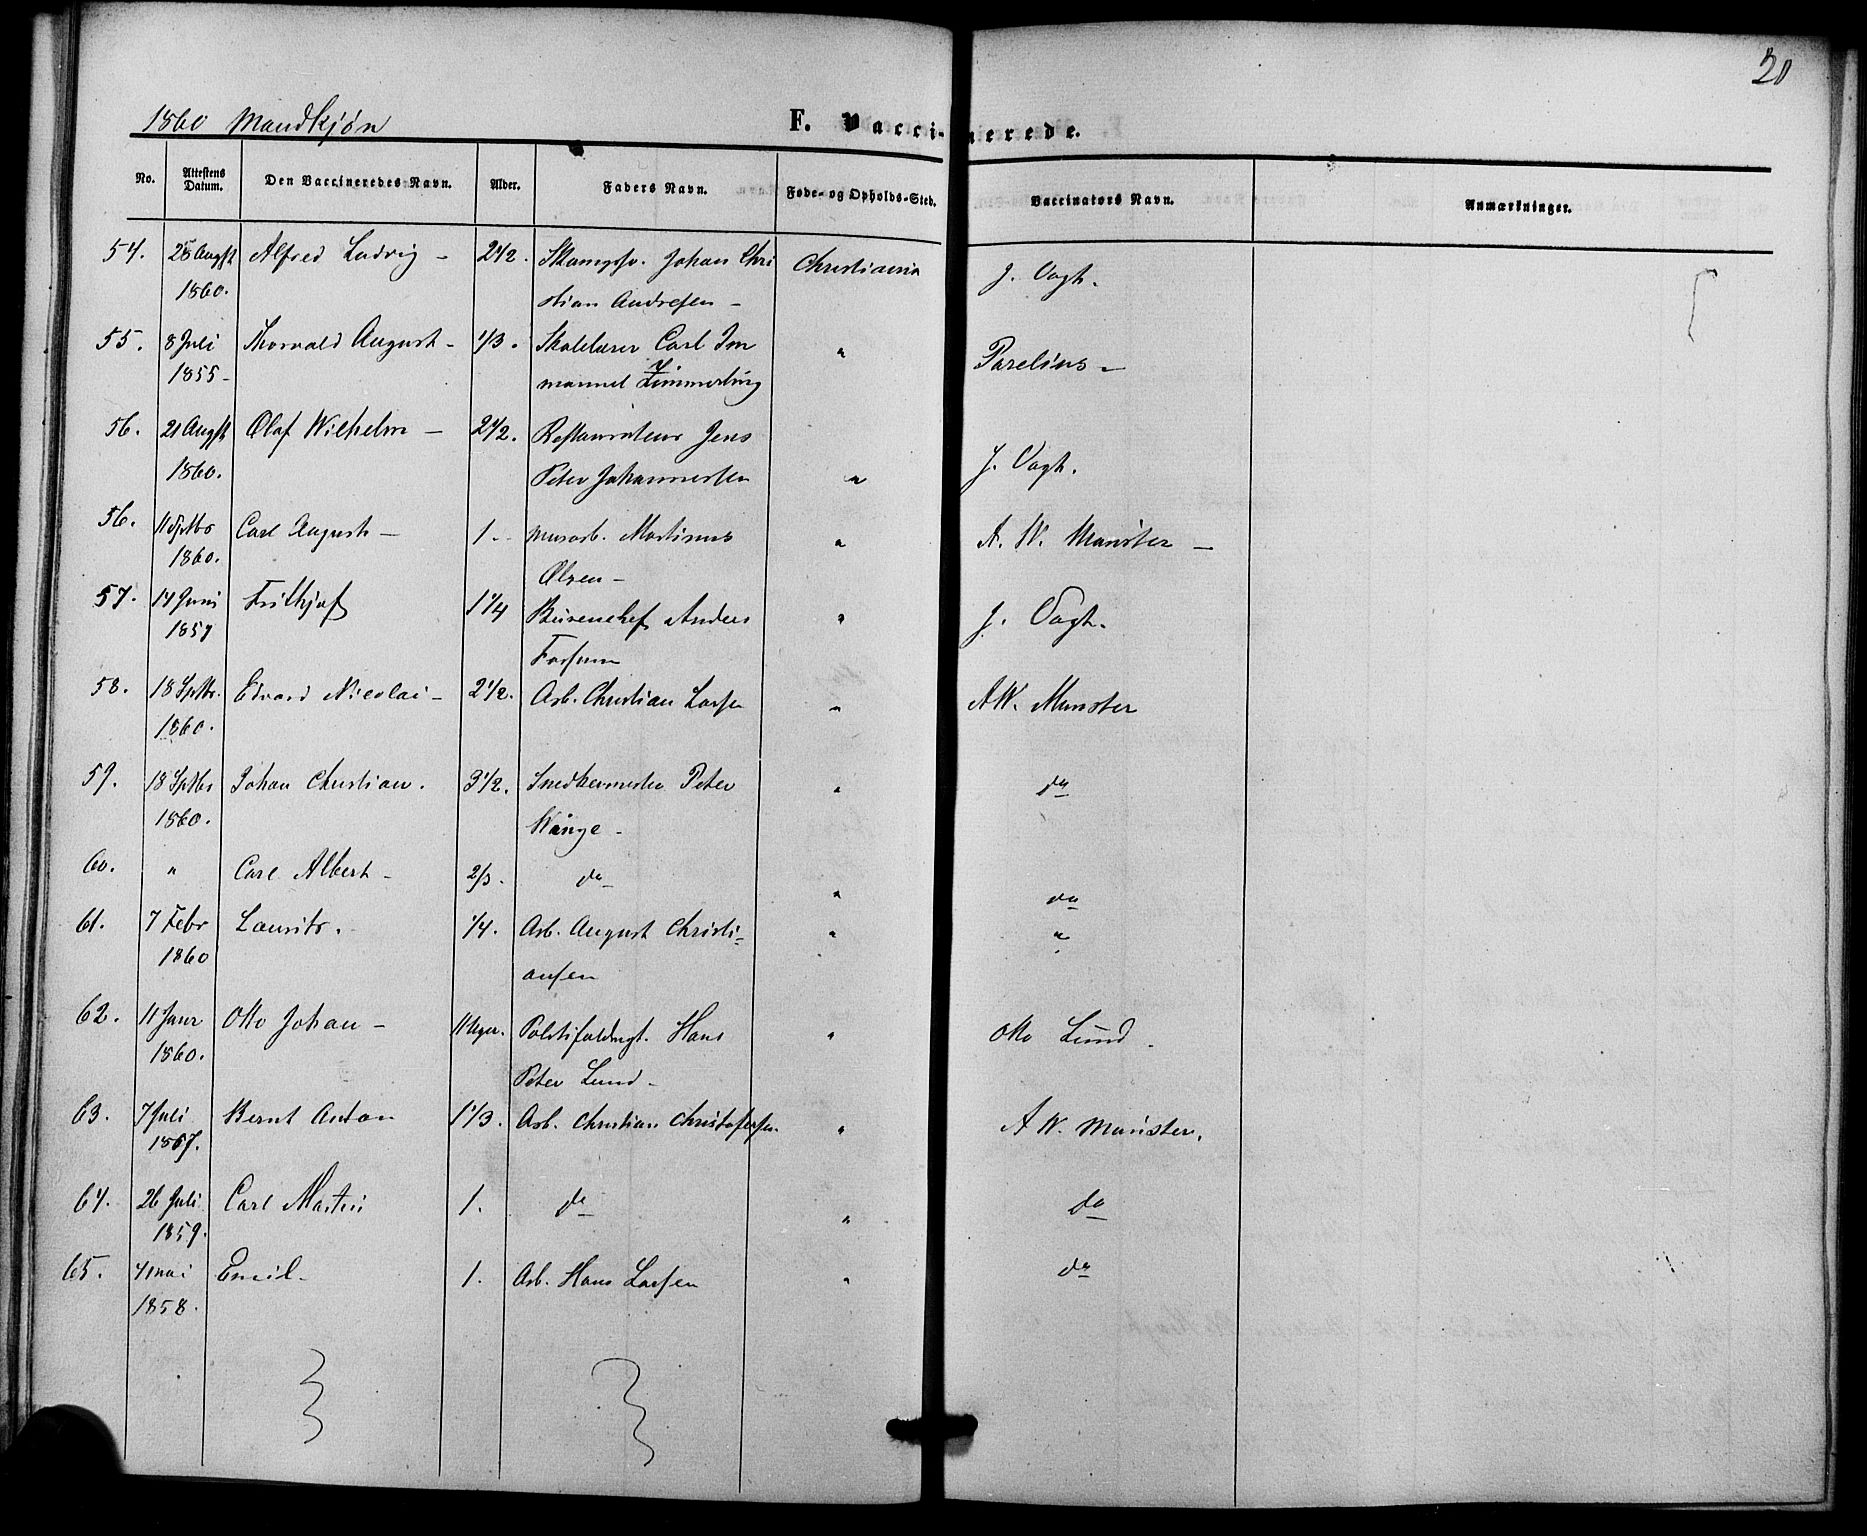 20
1860 Mandkjøn
F. Vaccinerede.
No. Attestens Datum. Den Vaccineredes Navn. Alder. Faders Navn. Føde- og Opholds-Sted. Vaccinators Navn. Anmærkninger.
54. 25 Augst Alfred Ludvig - 2 1/2. Johan Chri Christiania J. Vogt.
1860. stian Andresen -
55. 8 Juli Thorvald August - 1/3. Skolelærer Carl Im " Parelius -
1855 - manuel Zimmerling
56. 21 Augst Olaf Wilhelm - 2 1/2. Restaurateur Jens
1860. Peter Johannessen " J. Vogt.
56. 11 Septbr Carl August - 1. - Murarb. Martinus " A. W. Münster -
1860. Olsen -
57. 14 Juni Frithjof 1 1/4 Bureauchef Anders " J. Vogt.
1857 Fossum
58. 18 Septbr. Edvard Nicolai - 2 1/2. Arb. Christian Larsen " A W. Münster
1860.
59. 18 Septbr Johan Christian. 3 1/2. Snedkermester Peter " do
1860. Wange -
60. " Carl Albert - 2/3. do " do
61. 7 Febr Laurits. 1/4. Arb. August Christi= " "
1860 ansen
62. 11 Janr Otto Johan - 11 Uger. Politifuldmgt. Hans " Otto Lund.
1860. Peter Lund -
63. 7 Juli Bernt Anton 1 1/3. Arb. Christian Christofersen. " A W. Münster.
1857.
64. 26 Juli Carl Martin 1. do " do
1859.
65. 4 Mai Emil. 1. Arb. Hans Larsen " do
1858.